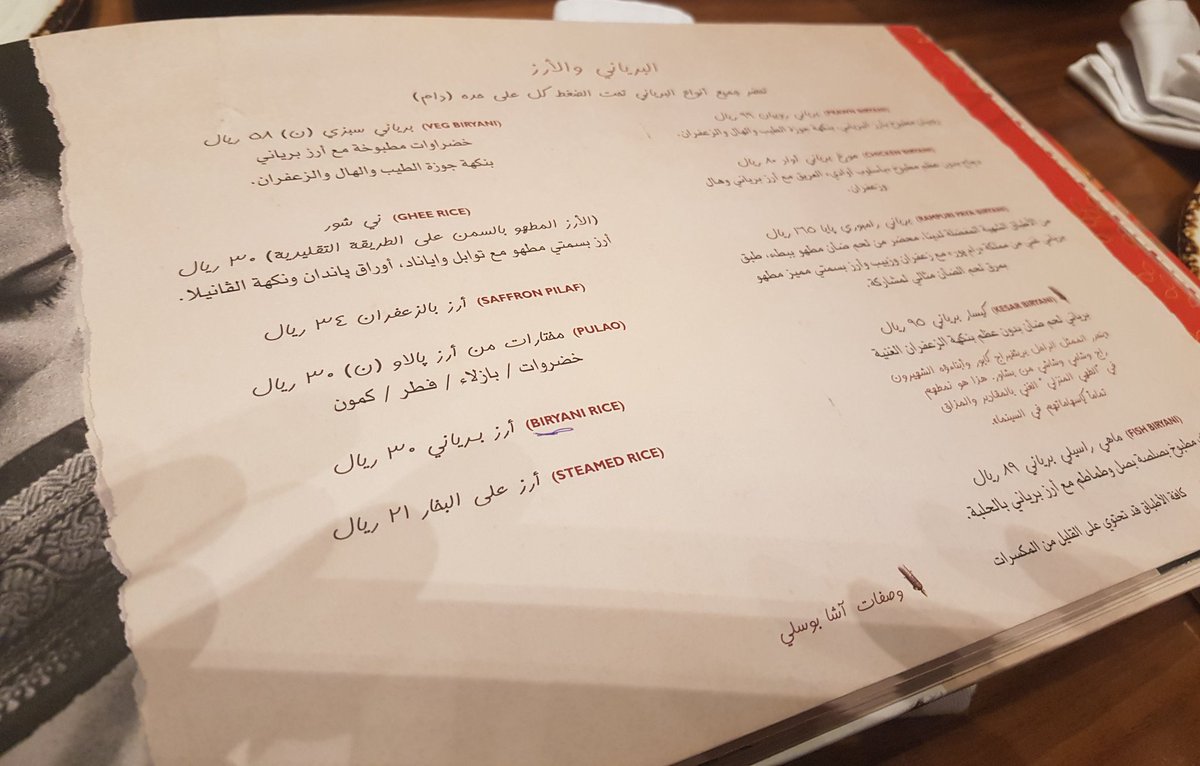 البرياني والأرز
تحضر جميع أنواع البرياني تحت الضغط كل على حده (دام)
(PRAWN BIRYANI) برياني روبيان ٩٩ ريال
روبيان مطبوخ بأرز البرياني، بنكهة جوزة الطيب والهال والزعفران.
(CHICKEN BIRYANI) مورغ برياني أواد ٨٠ ريال
دجاج بدون عظم مطبوخ بأسلوب أوادي، العريق مع أرز برياني وهال
وزعفران.
(RAMPURI PAYA BIRYANI) برياني رامبوري پايا ١٦٥ ريال
من الأطباق الشهية المفضلة لدينا، محضر من لحم ضان مطهو ببطء، طبق
برياني غني من مملكة رام بور، مع زعفران وزبيب وأرز بسمتي مميز مطهو
بمرق لحم الضان مثالي لمشاركة.
(KESAR BIRYANI) كيسار برياني ٩٥ ريال
برياني لحم ضان بدون عظم بنكهة الزعفران الغنية
الممثل الراحل بريتفيراج كبور وأبناؤه الشهيرون
راج وشامي وشاشي من بشاور. هذا هو نمطهم
في "الطهي المنزلي" الغني بالمقادير والمذاق
تماماً كإسهاماتهم في السينما.
(FISH BIRYANI) ماهي راسيلي برياني ٨٩ ريال
مطبوخ بصلصة بصل وطماطم مع أرز برياني بالحلبة.
كافة الأطباق قد تحتوي على القليل من المكسرات
وصفات آشا بوسلي
(VEG BIRYANI) برياني سبزي (ن) ٥٨ ريال
خضراوات مطبوخة مع أرز برياني
بنكهة جوزة الطيب والهال والزعفران.
(GHEE RICE) ني شور
(الأرز المطهو بالسمن على الطريقة التقليدية) ٣٠ ريال
أرز بسمتي مطهو مع توابل واياناد، أوراق پاندان ونكهة الڤانيلا.
(SAFFRON PILAF) أرز بالزعفران ٣٤ ريال
(PULAO) مختارات من أرز پالاو (ن) ٣٠ ريال
خضروات / بازلاء / فطر / كمون
(BIRYANI RICE) أرز برياني ٣٠ ريال
(STEAMED RICE) أرز على البخار ٢١ ريال